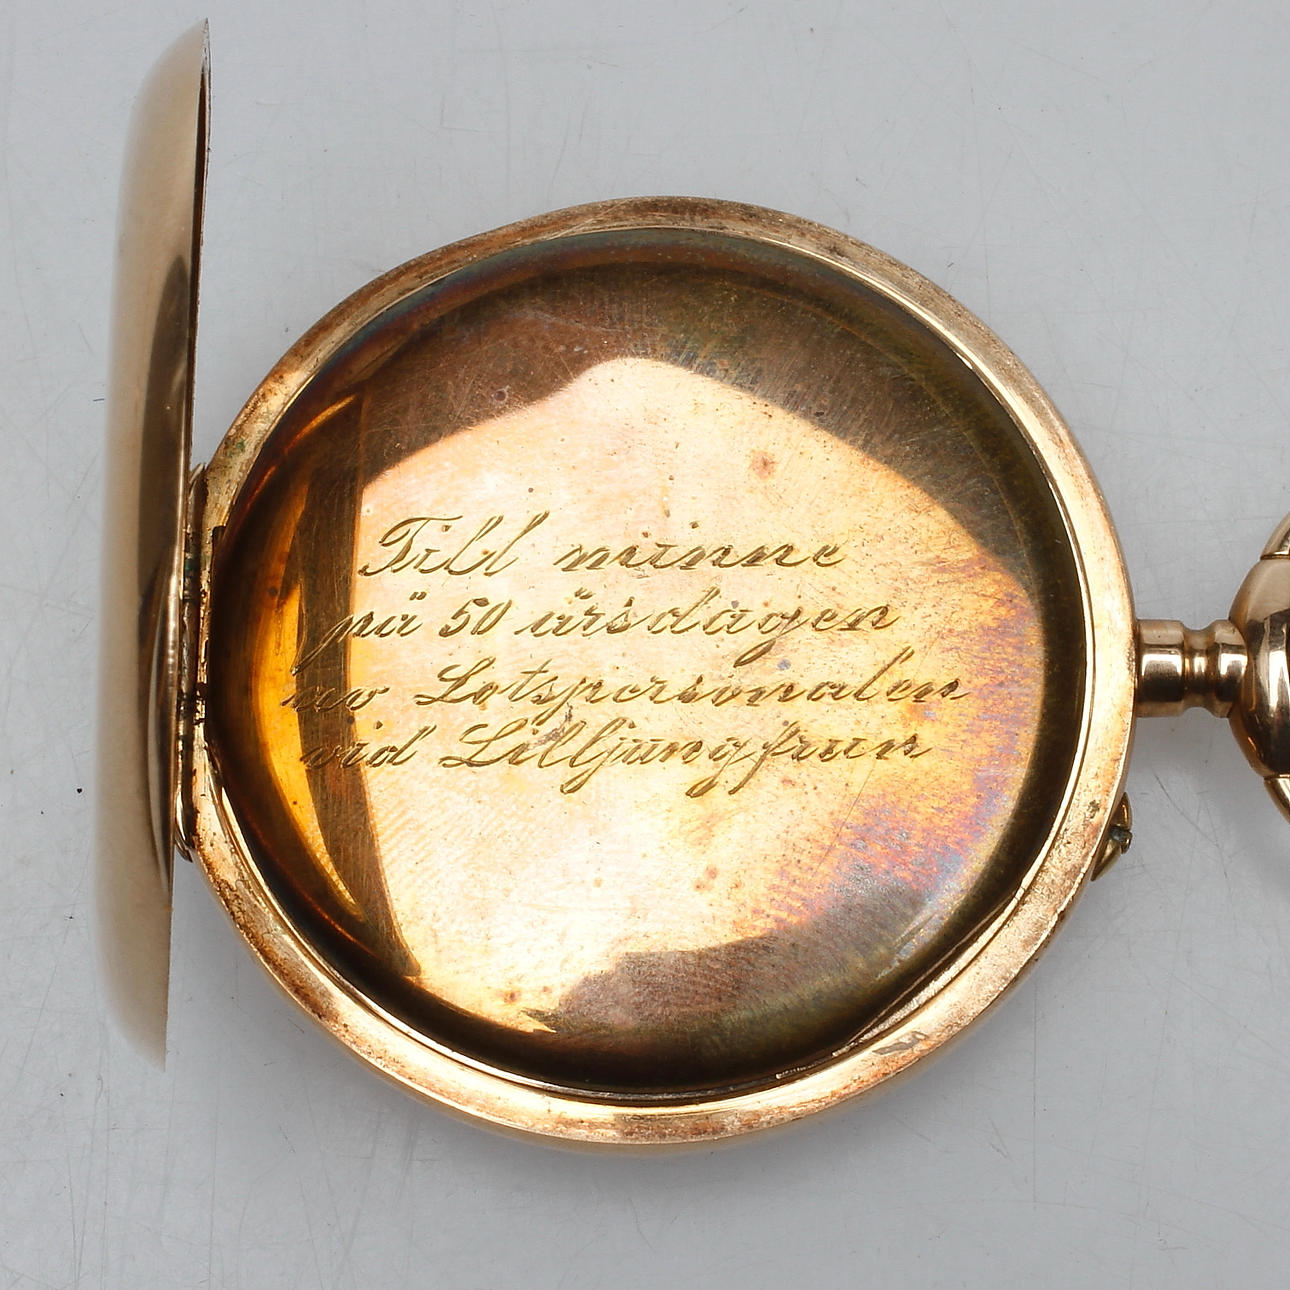 Till minne
på 50 årsdagen
av Lotspersonalen
vid Lilljungfrun